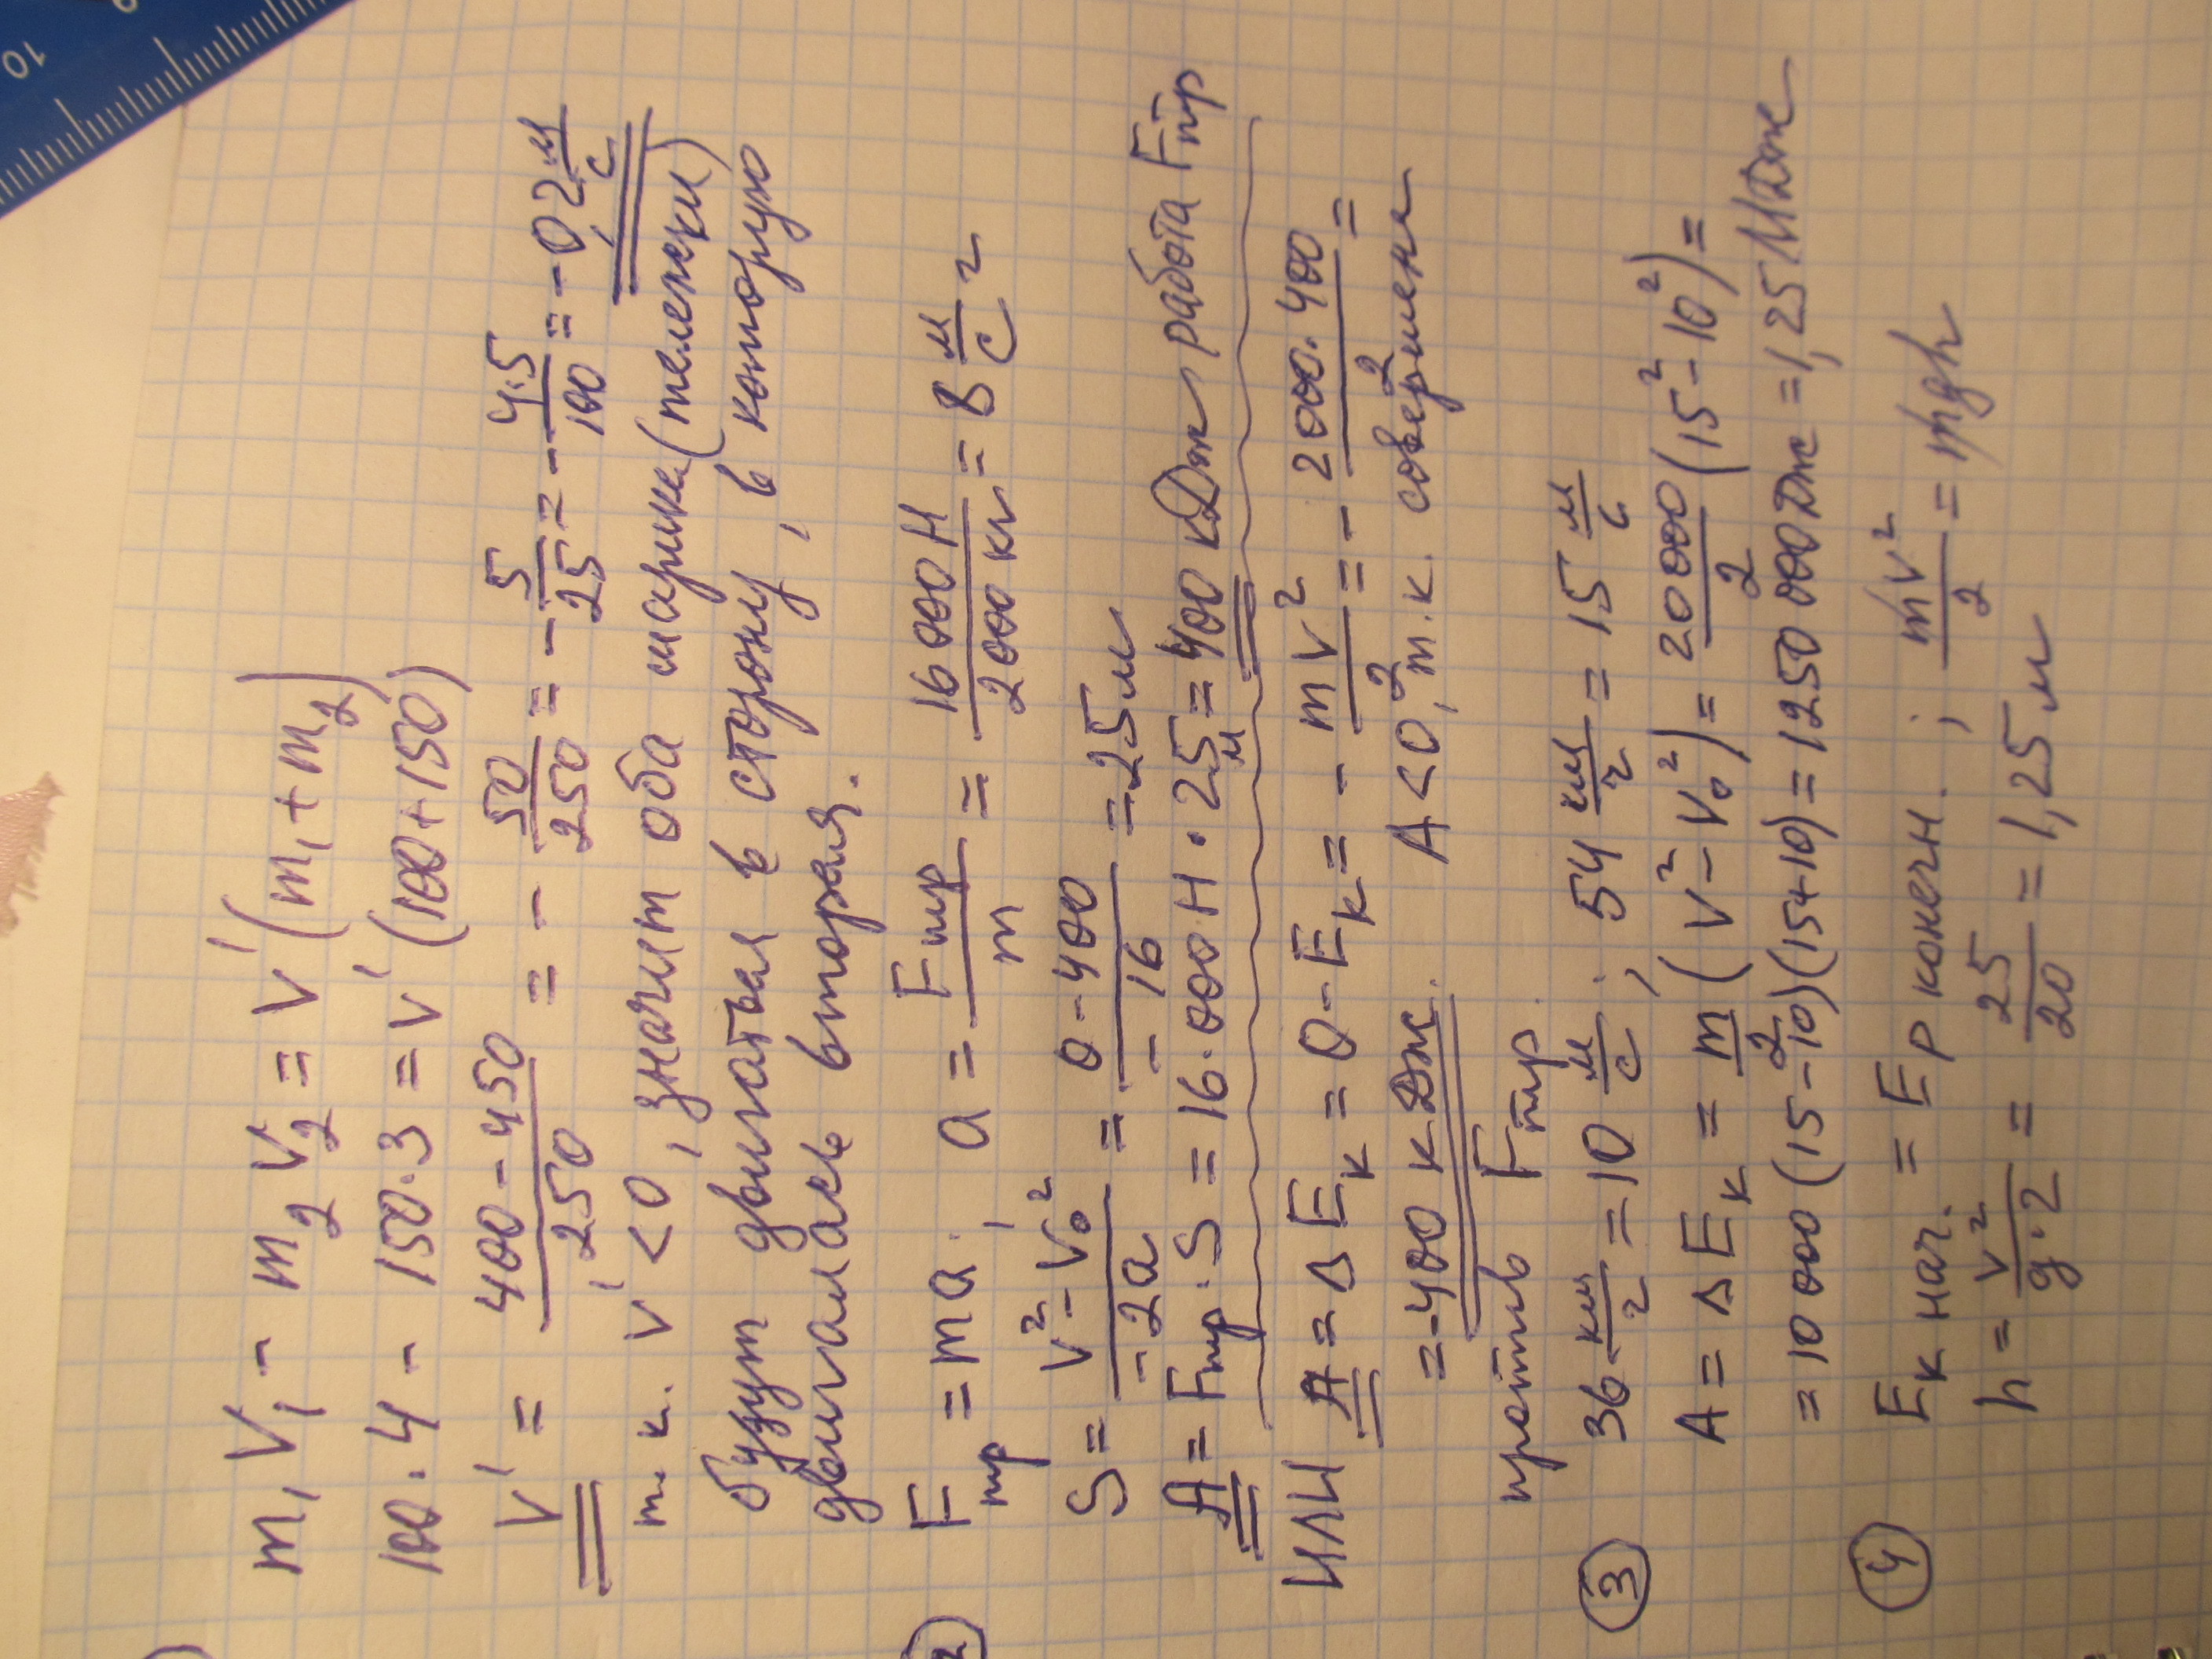 m₁V₁ - m₂V₂ = V'(m₁+m₂)
100·4 - 150·3 = V'(100+150)
V' = \frac{400-450}{250} = -\frac{50}{250} = -\frac{5}{25} = -\frac{4·5}{100} = -0,2 \frac{м}{с}
т.к. V' < 0, значит оба шарика (тележки)
будут двигаться в сторону, в которую
двигалась вторая.
2
Fтр = ma; a = \frac{Fтр}{m} = \frac{16000Н}{2000кг} = 8 \frac{м}{с}2
S = \frac{V²-V₀²}{-2a} = \frac{0-400}{-16} = 25м
A = Fтр·S = 16·000Н·25м = 400кДж работа Fтр
или A = ΔEк = 0-Eк = -\frac{mV²}{2} = -\frac{2000·400}{2} =
= -400кДж. A<0, т.к. совершена
против Fтр.
3 36 \frac{км}{г} = 10 \frac{м}{с}; 54 \frac{км}{г} = 15 \frac{м}{с}
A = ΔEк = \frac{m}{2}(V²-V₀²) = \frac{20000}{2}(15²-10²) =
= 10000(15-10)(15+10) = 1250000Дж = 1,25МДж
4 Eк нач. = Eр конечн.; \frac{mV²}{2} = mgh
h = \frac{V²}{g·2} = \frac{25}{20} = 1,25м
10
9